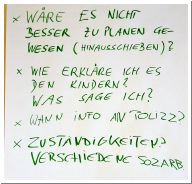 × WÄRE ES NICHT
BESSER ZU PLANEN GE-
WESEN (HINAUSSCHIEBEN)?
× WIE ERKLÄRE ICH ES
DEN KINDERN?
WAS SAGE ICH?
× WANN INFO AN POLIZZ?
× ZUSTÄNDIGKEITEN
VERSCHIEDENE SOZARB